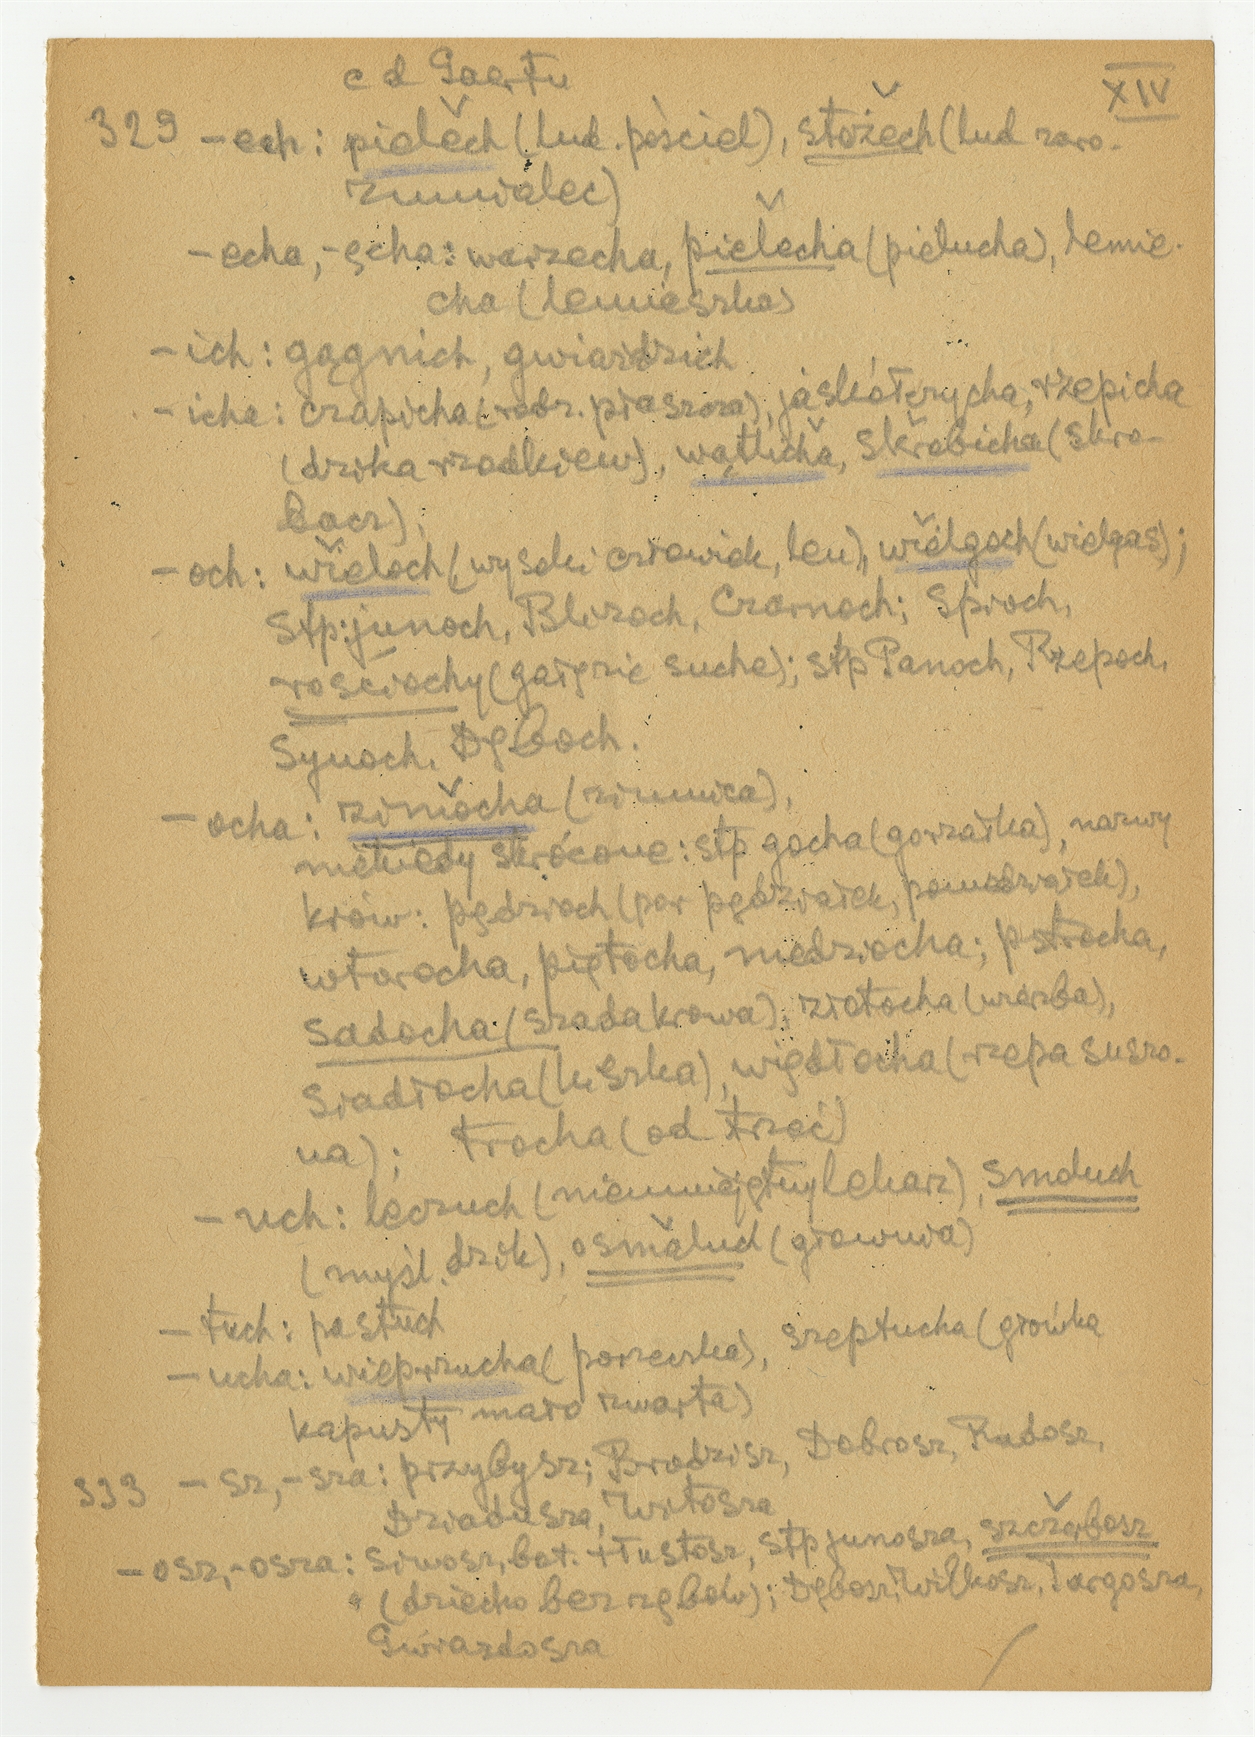 c d Gaertu
XIV
329 – ech: pielech (lud. pościel), stożech (lud zaro-
zumialec)
– echa, -ęcha: warzecha, pielecha (pielucha), lemie-
cha (lemieszka)
– ich: gągnich, gwiaździch
– icha: czapicha (rodz. płaszcza), jaskółczycha, rzepicha
(dzika rzodkiew), wątlicha, skrobicha (skro-
bacz),
– och: wieloch (wysoki człowiek, leń), wielgoch (wielgas);
stp: junoch, Blizoch, Czarnoch; śpioch,
rosochy (gałęzie suche); stp Panoch, Rzepoch,
Synoch, Dęboch.
– ocha: zimiocha (zimnica),
niekiedy skrócone: stp gocha (gorzałka), nazwy
krów: pędzioch (por pędziałek, poniedziałek),
wtorocha, piętocha, niedziocha; pstrocha,
sadocha (szada krowa), złotocha (wierzba),
siadłocha (kiszka), więdłocha (rzepa suszo-
na); trocha (od trzeć)
– uch: leczuch (nieumiejętny lekarz), smoluch
(myśl. dzik), osmaluch (głownia)
– tuch: pastuch
– ucha: wieprzucha (porzeczka), szeptucha (główka
kapusty mało zwarta)
333 – sz, – sza: przybysz; Brodzisz, Dobrosz, Radosz,
Dziadusza, Witosza
– osz, -osza: siwosz, bot. + tłustosz, stp junosza, szczerbosz
(dziecko bez zębów); Dębosz, Wilkosz, Targosza,
Gwiazdosza